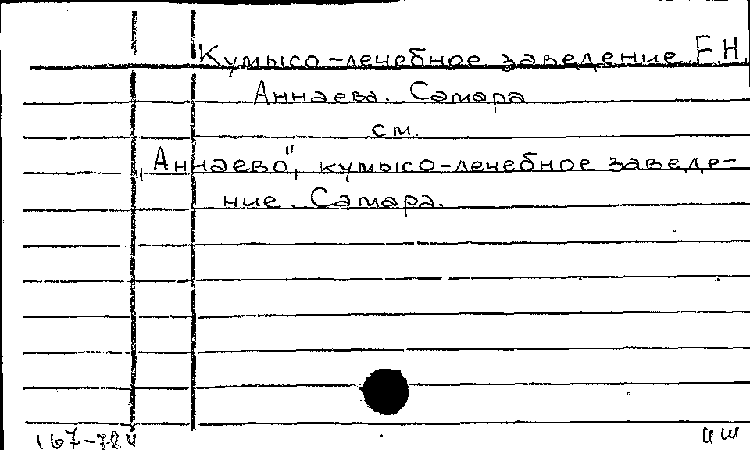 Кумысо-лечебное заведение Е.Н.
Аннаева. Самара
см.
„Аннаево", кумысо-лечебное заведе-
ние. Самара.